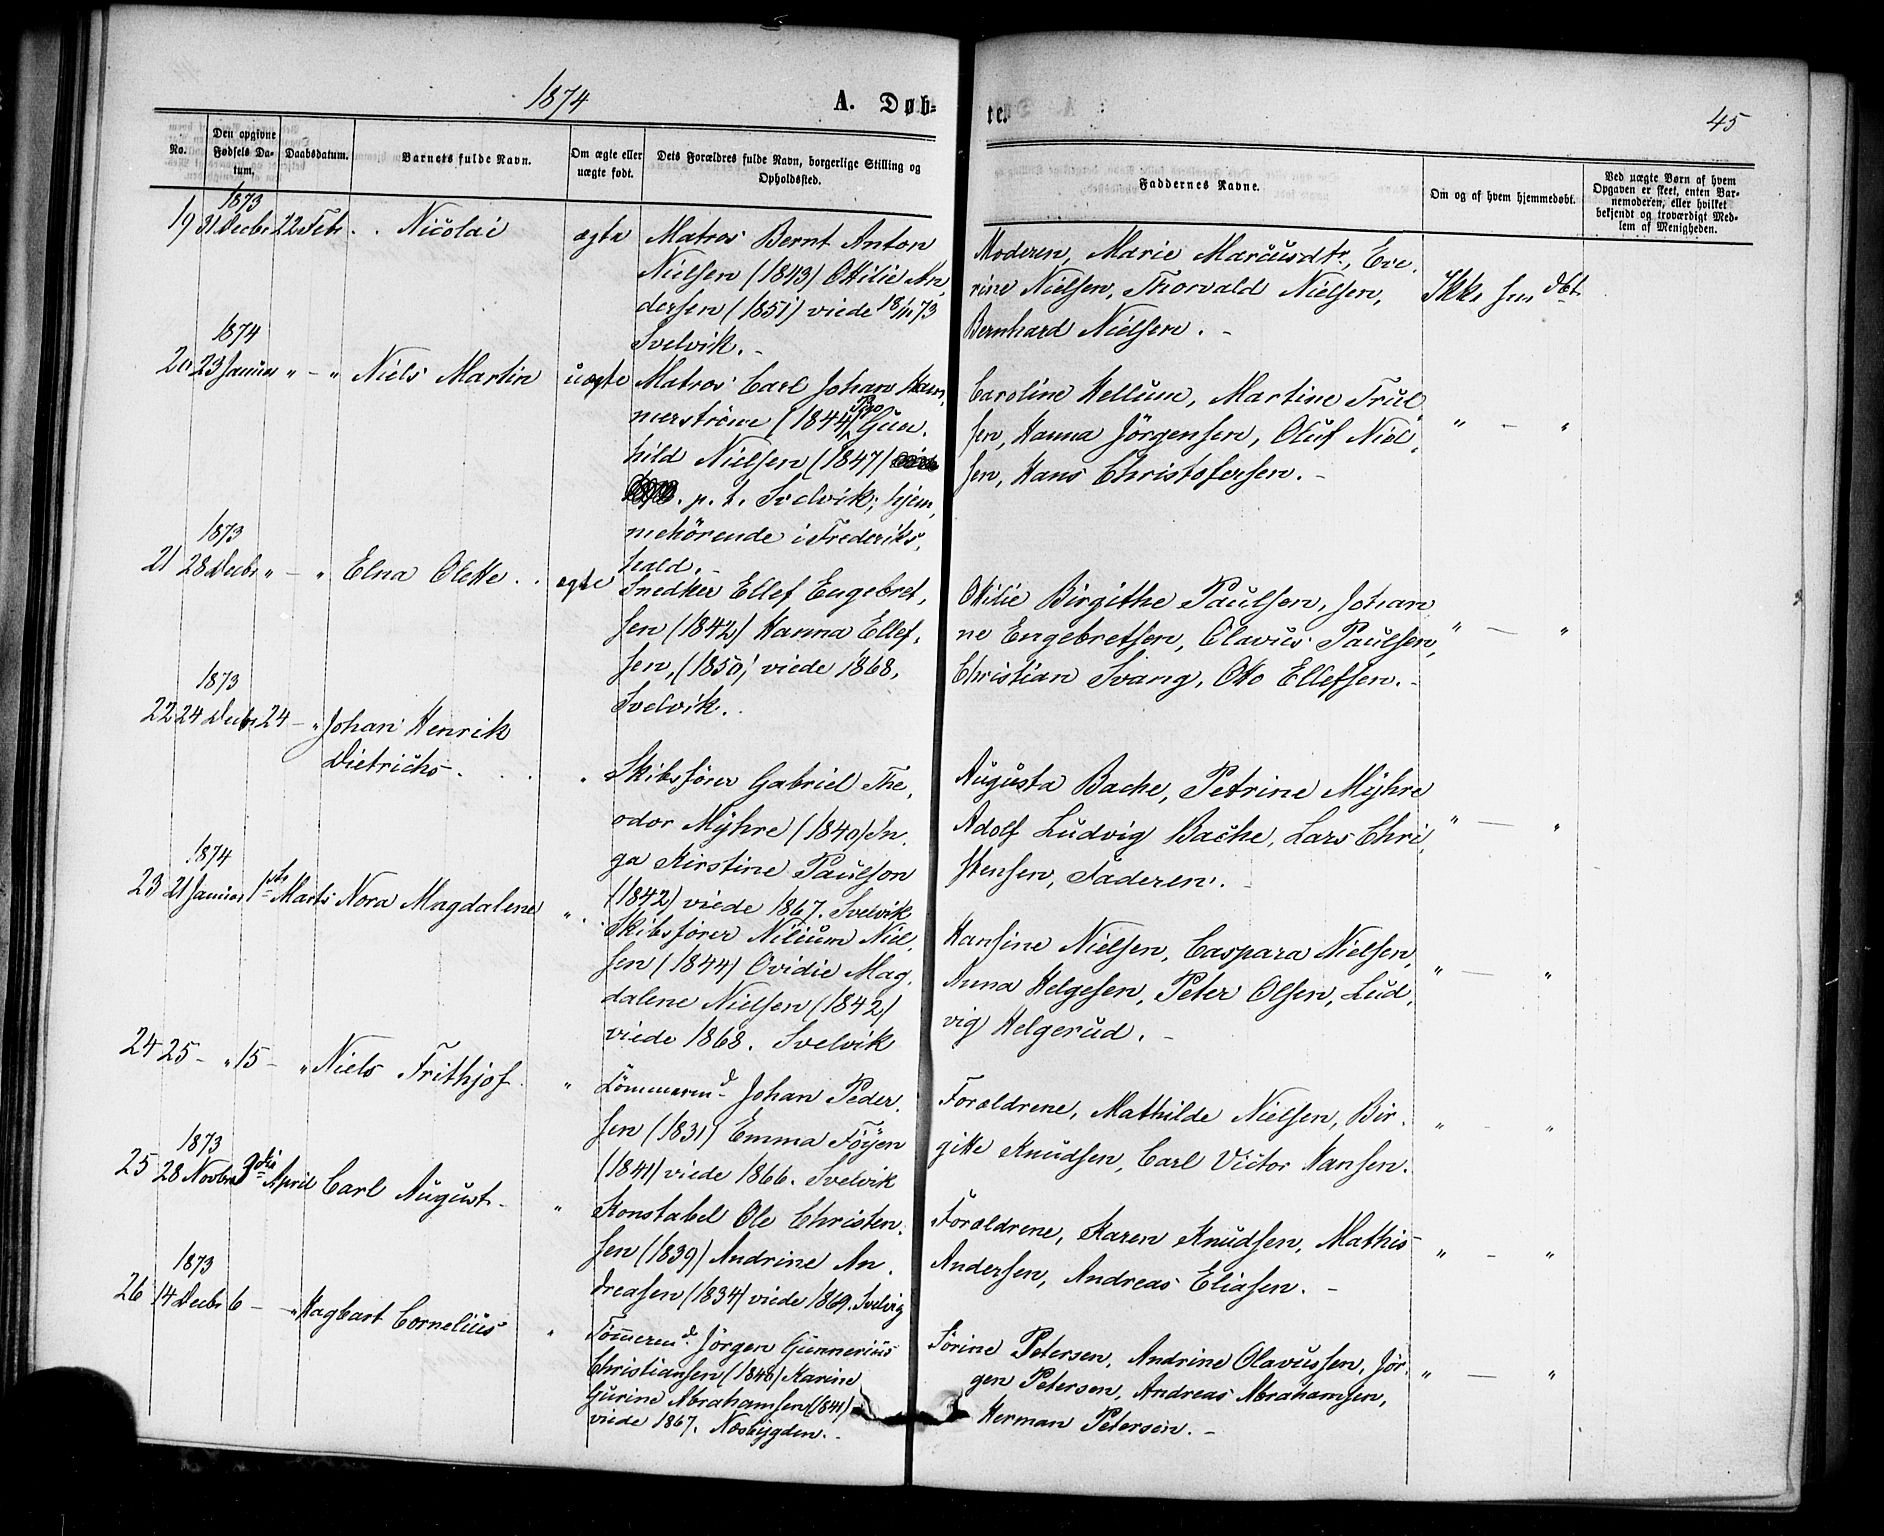 1874
A. Døb-
te.
45
No.
Den opgivne Fødsels Da-tum.
Daabsdatum.
Barnets fulde Navn.
Om ægte eller uægte født.
Dets Forældres fulde Navn, borgerlige Stilling og Opholdssted.
Faddernes Navne.
Om og af hvem hjemmedøbt.
Ved uægte Børn af hvem Opgaven er skeet, enten Bar-nemoderen, eller hvilket bekjendt og troværdigt Med-lem af Menigheden.
1873
19 31 Decbr 22 Febr. . Nicolai ægte
Matros Bernt Anton
Nielsen (1843) Ottilie An,
dersen (1851) viede 18/11 73
Svelvik. -
Moderen, Marie Marcusdtr, Eve,
rine Nielsen, Thorvald Nielsen,
Bernhard Nielsen. -
Ikke hm dbt
1874
20 23 Januar " - " Niels Martin uægte
Matros Carl Johan Ham,
merstrøm (1844) Pige Gun,
hild Nielsen (1847)
. p. t. Svelvik; hjem,
mehörende i Frederiks,
hald. -
Caroline Hellum, Martine Trul
sen, Hanna Jörgensen, Oluf Niel,
sen, Hans Christofersen. -
" - "
1873
21 28 Decbr " - " Elna Olette . . ægte
Snedker Ellef Engebret,
sen (1842) Hanna Ellef,
sen, (1850) viede 1868,
Svelvik. .
Ottilie Birgithe Paulsen, Johan
ne Engebretsen, Olavus Paulsen,
Christian Svang, Otto Ellefsen. -
" - "
1873
22 24 Decbr 24 - " Johan Henrik
Dietrichs . . . "
Skibsfører Gabriel The,
odor Mÿhre (1840) In,
ga Kirstine Paulson
(1842) viede 1867. Svelvik
Augusta Bache, Petrine Mÿhre
Adolf Ludvig Bache, Lars Chri,
stensen, Faderen. -
" - "
1874
23 21 Januar 1ste Marts Nora Magdalene " .
Skibsfører Nilium Niel,
sen (1844) Ovidie Mag,
dalene Nielsen (1842)
viede 1868. Svelvik
Hansine Nielsen, Caspara Nielsen,
Anna Helgesen, Peter Olsen, Lud,
vig Helgerud. -
" - "
24 25 - " 15 - " Niels Frithjof . "
Tömmermd Johan Peder,
sen (1831) Emma Föÿen
(1841) viede 1866. Svelvik
Forældrene, Mathilde Nielsen, Bir,
gitte Knudsen, Carl Victor Hansen.
" - "
1873
25 28 Novbr April Carl August - "
Konstabel Ole Christen,
sen (1839) Andrine An,
dreasen (1834) viede 1869. Svelvig
Forældrene, Karen Knudsen, Mathis
Andersen, Andreas Eliasen. -
" - "
1873
26 14 Decbr 6 - " Hagbart Cornelius "
Tömermd Jörgen Gunnerius
Christiansen (1848) Karine
Gurine Abrahamsen (1841)
viede 1867. Næsbÿgden. -
Sörine Petersen, Andrine Olavussen, Jör,
gen Petersen, Andreas Abrahamsen,
Herman Petersen. -
" - "